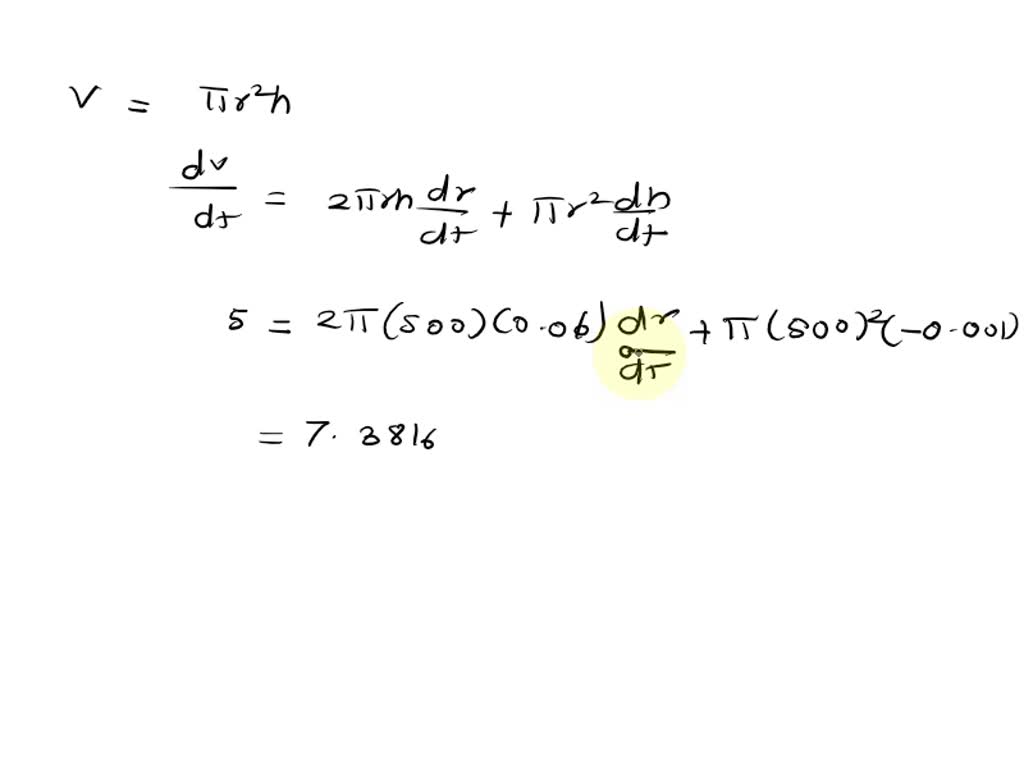 V = πr²h
dv/dt = 2πrh dr/dt + πr² dh/dt
5 = 2π(500)(0.06) dr/dt + π(500)²(-0.001)
= 7.3816